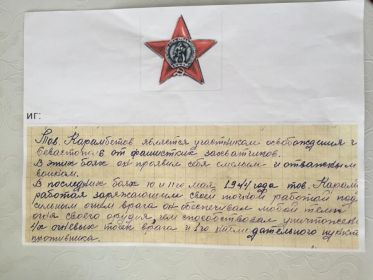 ИГ:
Тов. Карамбетов является участником освобождения г.
Севастополь от фашистких захватчиков.
В этих боях он проявил себя смелым и отважным
воином.
В последних боях 10 и 11го мая 1944 года тов. Карамб
работал заряжающим своей точной работой под
сильным огнем врага он обеспечивал любой темп
огня своего орудия, чем способствовал уничтожени
4х огневых точек врага и 1го наблюдательного пункта
противника.